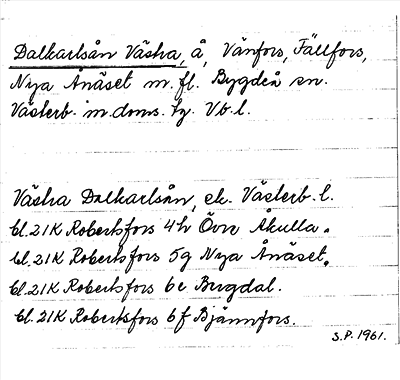 Dalkarlsån Västra, å, Vänfors, Fällfors,
Nya Ånäset m.fl. Bygdeå sn.
Västerb. m. doms. tg. Vb.l.
Västra Dalkarlsån, ek. Västerb. l.
bl. 21K Robertsfors 4h Övre Åkulla.
bl. 21K Robertsfors 5g Nya Ånäset.
bl. 21K Robertsfors 6e Brugdal.
bl. 21K Robertsfors 6f Bjännfors.
S.P. 1961.